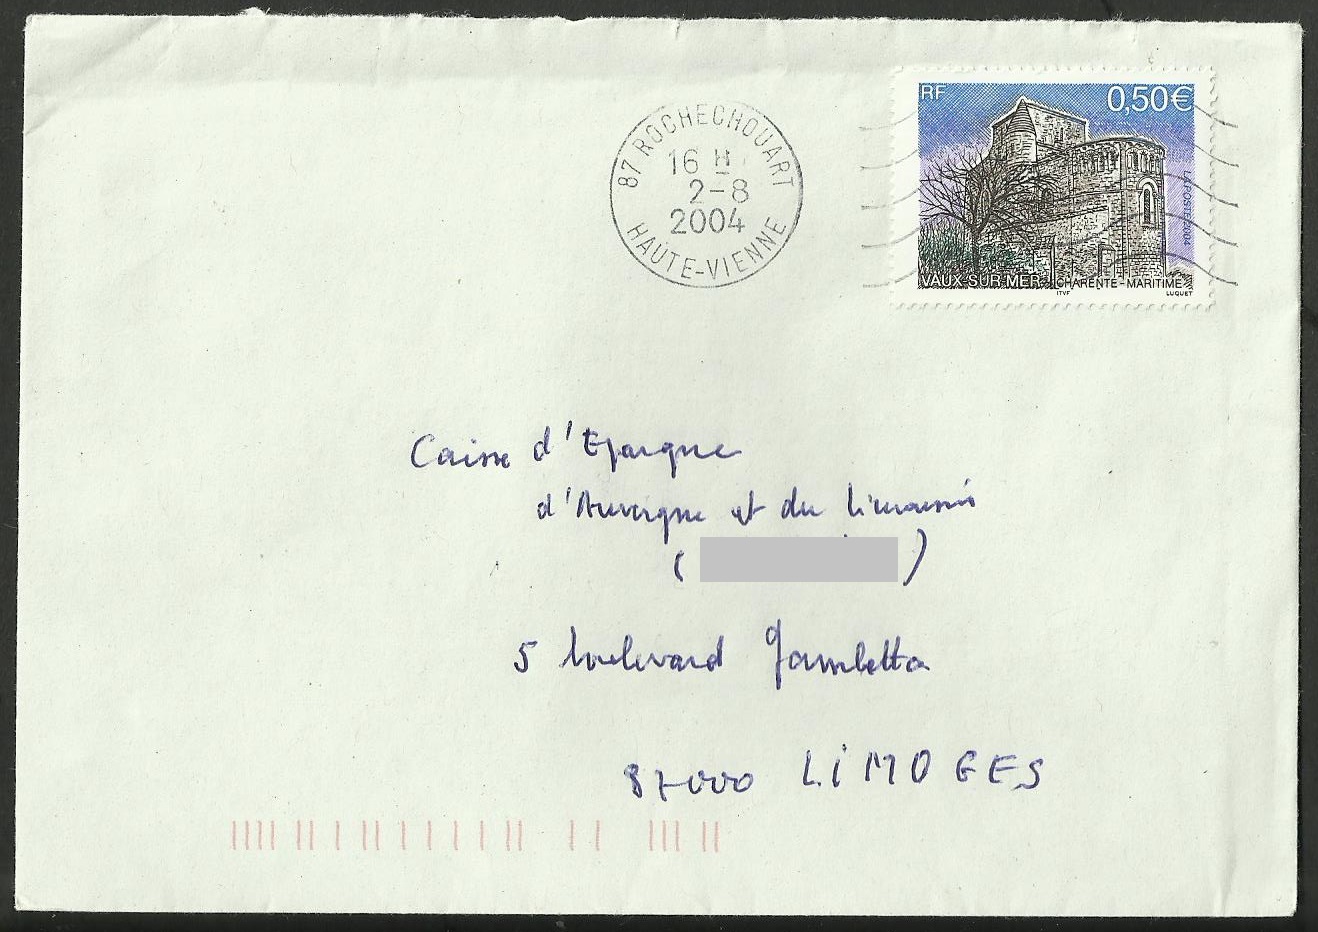 87 ROCHECHOUART
16 H
2-8
2004
HAUTE-VIENNE
RF
0,50€
LA POSTE 2004
VAUX-SUR-MER CHARENTE-MARITIME
ITVF
LUQUET
Caisse d'Epargne
d'Auvergne et du Limousin
( )
5 boulevard Gambetta
87000 LiMOGES